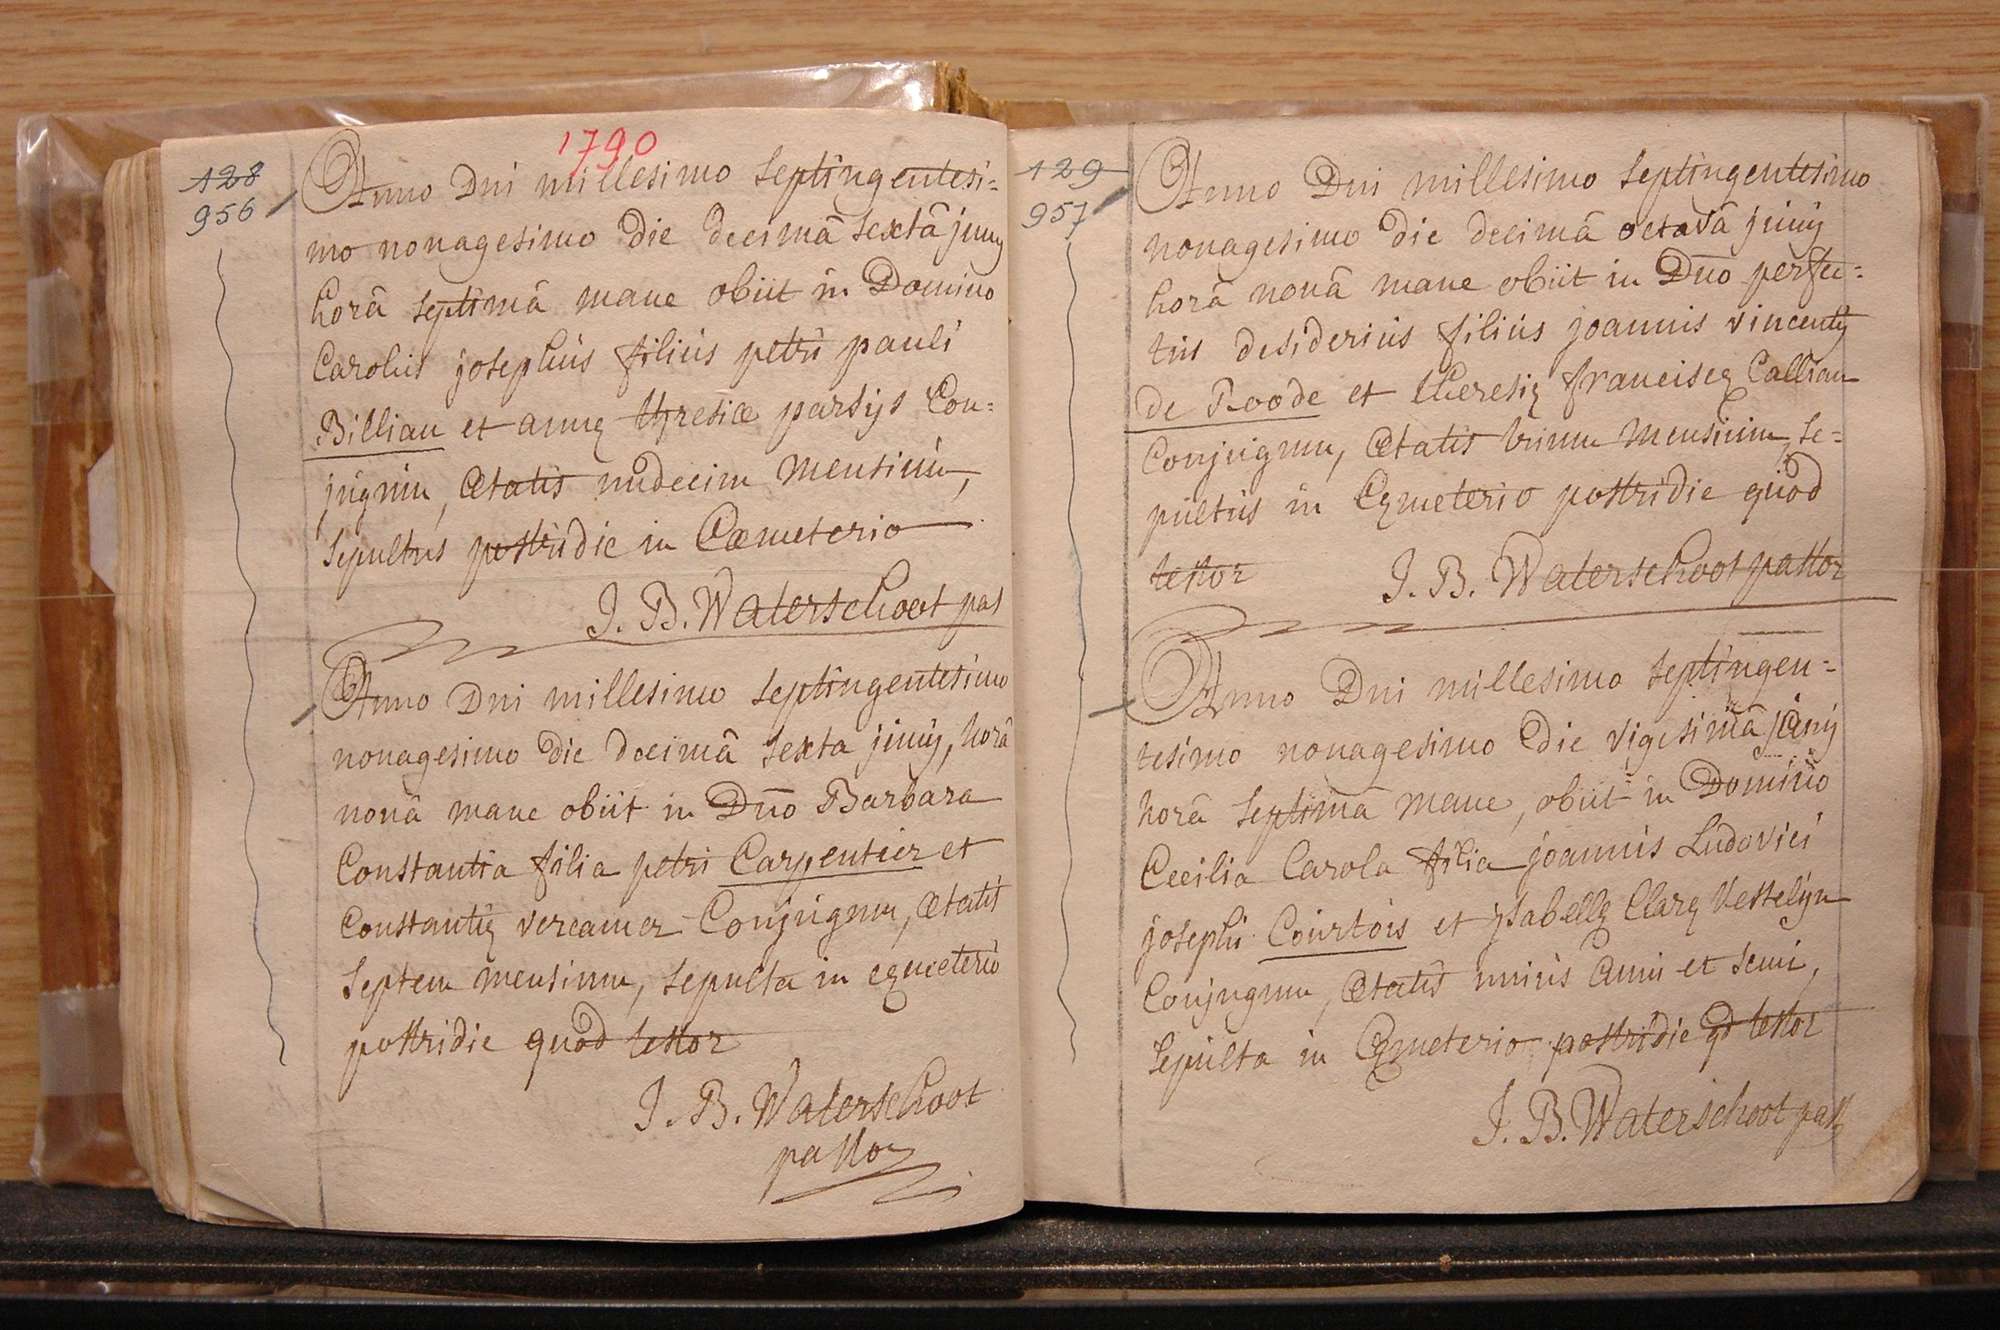 1790
128
956
Anno Dni millesimo septingentesi=
mo nonagesimo die decimâ sextâ junij
horâ septimâ mane obiit in Domino
Carolus josephus filius petri pauli
Billiau et annę thresiæ parsijs Con=
jugum, ætatis undecim mensium,
sepultus postridie in Cæmeterio
J. B. Waterschoot pas
Anno Dni millesimo septingentesimo
nonagesimo die decimâ sexta junij, horâ
nonâ mane obiit in Dno Barbara
Constantia filia petri Carpentier et
Constantię vercamer Conjugum, ætatis
septem mensium, sepulta in cęmeterio
postridie quod testor
J. B. Waterschoot
pastor
129
957
Anno Dni millesimo septingentesimo
nonagesimo die decimâ octavâ junij
horâ nonâ mane obiit in Dno perfec=
tus desiderius filius joannis vincentij
de Roode et theresię franciscę Calliau
Conjugum, ætatis trium mensium, se=
pultus in Cęmeterio postridie quod
testor J. B. Waterschoot pastor
Anno Dni millesimo septingen=
tesimo nonagesimo die vigesimâ junij
horâ septimâ mane, obiit in Domino
Cecilia Carola filia joannis Ludovici
josephi Courtois et ysabellę Clarę Vestelijn
Conjugum, ætatis unius anni et semi,
sepulta in Cęmeterio postridie qd testor
J. B. Waterschoot past